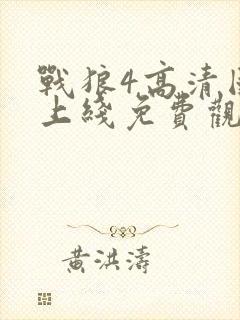 戰狼4高清
上綫免費觀
黃洪濤